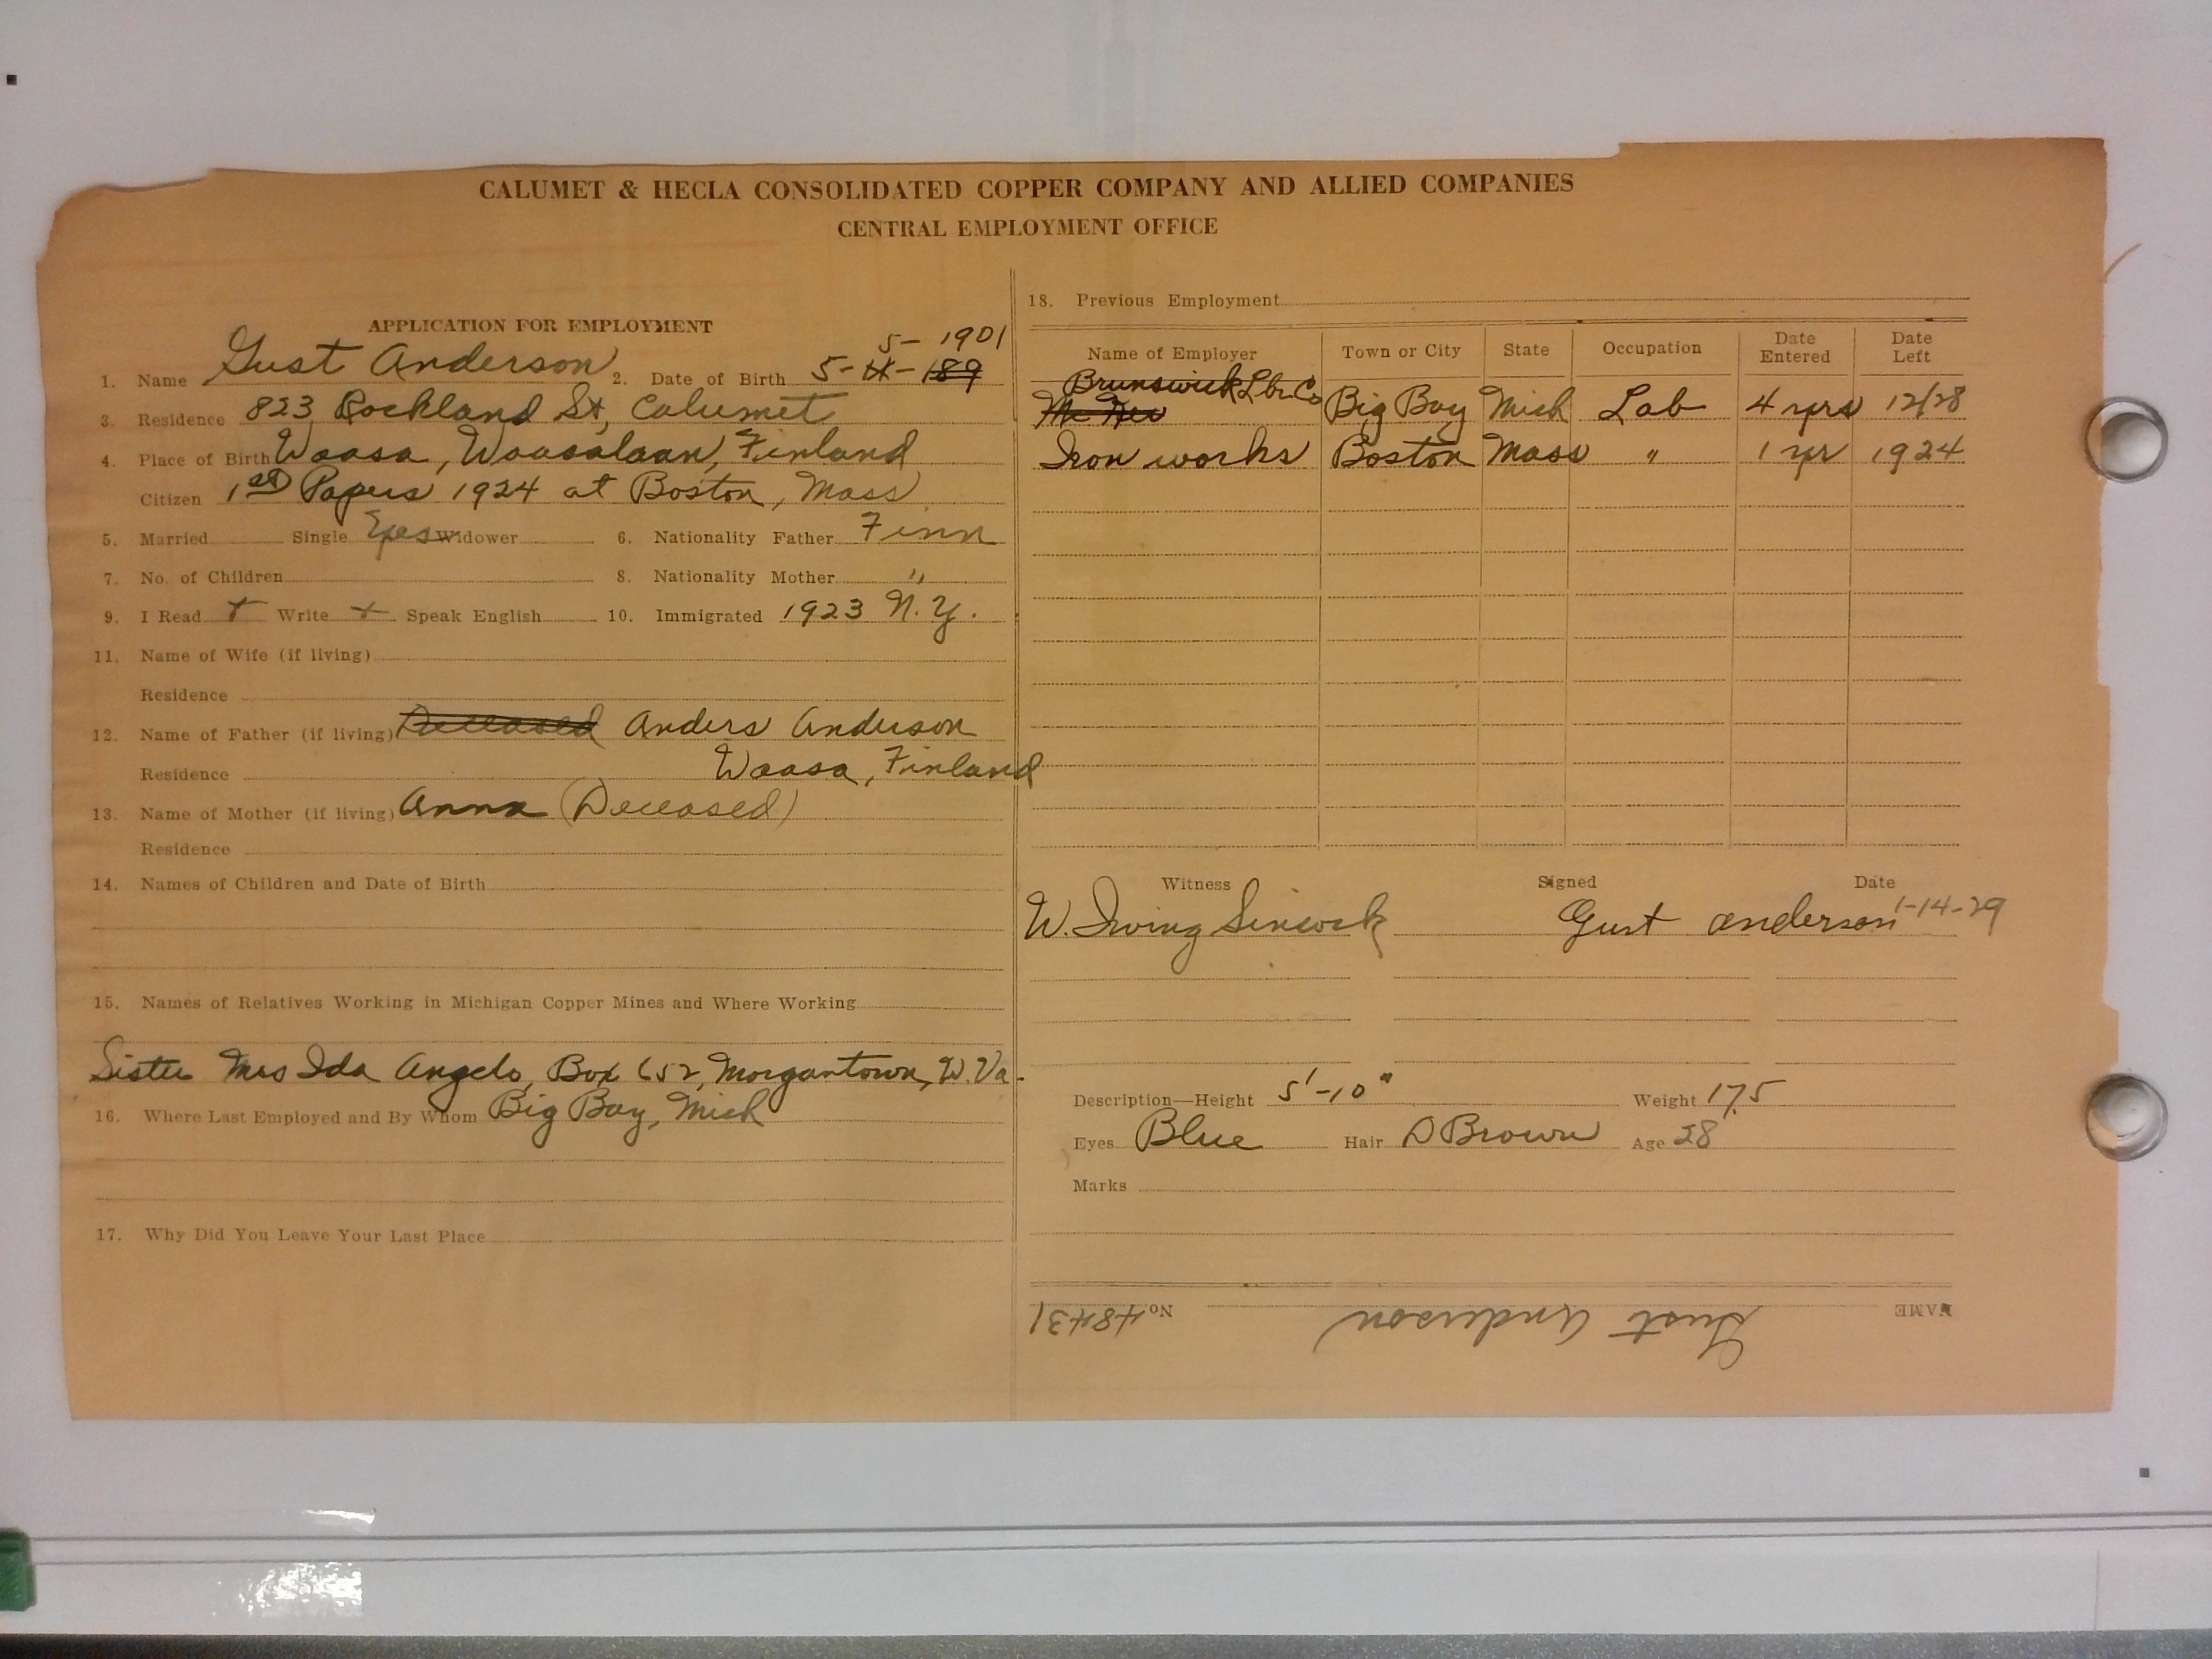 CALUMET & HECLA CONSOLIDATED COPPER COMPANY AND ALLIED COMPANIES
CENTRAL EMPLOYMENT OFFICE
APPLICATION FOR EMPLOYMENT
5- 1901
1. Name Gust Anderson 2. Date of Birth 5- - 189
3. Residence 823 Rockland St, Calumet
4. Place of Birth Waasa, Waasalaan, Finland
Citizen 1st Papers 1924 at Boston, Mass
5. Married Single yes Widower 6. Nationality Father Finn
7. No. of Children 8. Nationality Mother "
9. I Read + Write + Speak English 10. Immigrated 1923 N.Y.
11. Name of Wife (if living)
Residence
12. Name of Father (if living) Deceased Anders Anderson
Residence Waasa, Finland
13. Name of Mother (if living) Anna (Deceased)
Residence
14. Names of Children and Date of Birth
15. Names of Relatives Working in Michigan Copper Mines and Where Working
Sister Mrs Ida Angelo, Box 652, Morgantown, W.Va.
16. Where Last Employed and By Whom Big Bay, Mich
17. Why Did You Leave Your Last Place
18. Previous Employment
Name of Employer Town or City State Occupation Date Entered Date Left
Brunswick Lbr Co Big Bay Mich Lab 4 yrs 12/28
Iron works Boston Mass " 1 yr 1924
Witness Signed Date
W. Irving Gust Anderson 1-14-29
Description—Height 5'-10" Weight 175
Eyes Blue Hair D Brown Age 28
Marks
NAME Gust Anderson No 48431